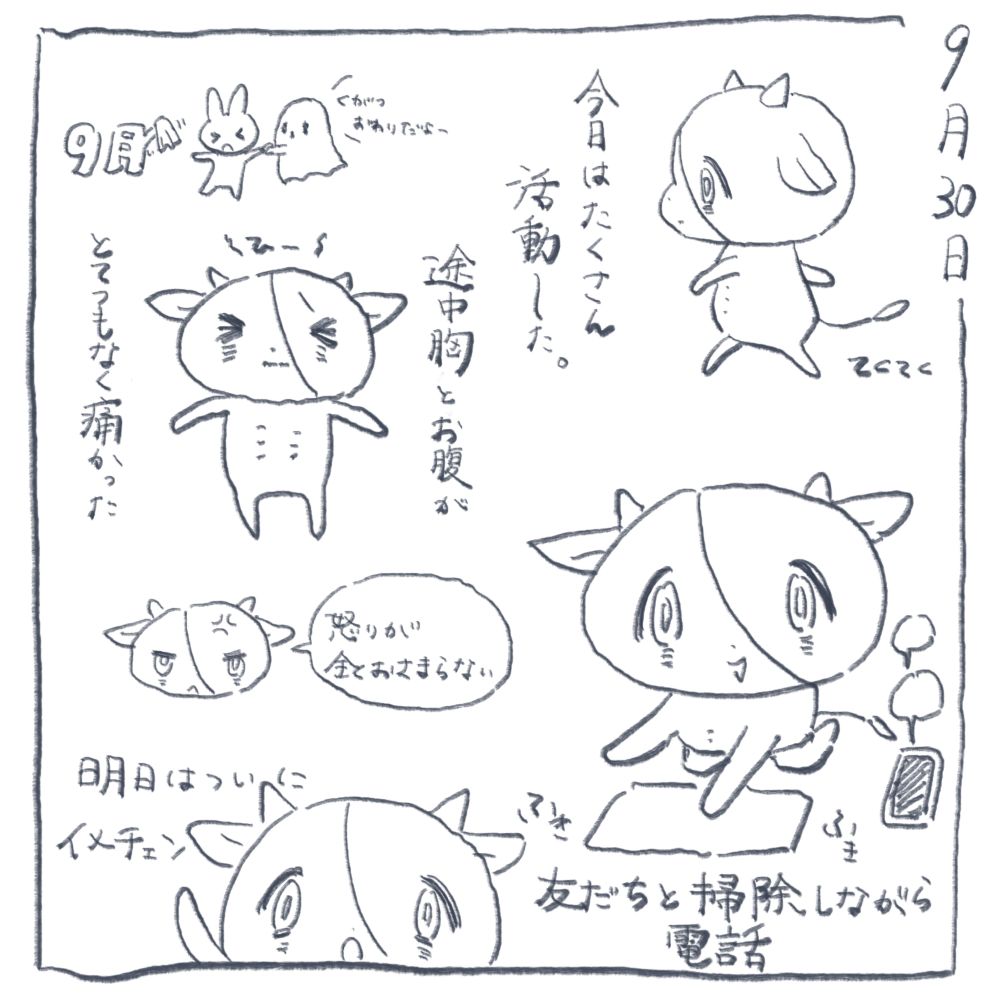 9月30日
今日はたくさん
活動した。
てくてく
友だちと掃除しながら
電話
ふき
ふき
9月が
くがつ
おわりだよ〜
ひーー
途中胸とお腹が
とてつもなく痛かった
怒りが
全どおさまらない
明日はついに
イメチェン